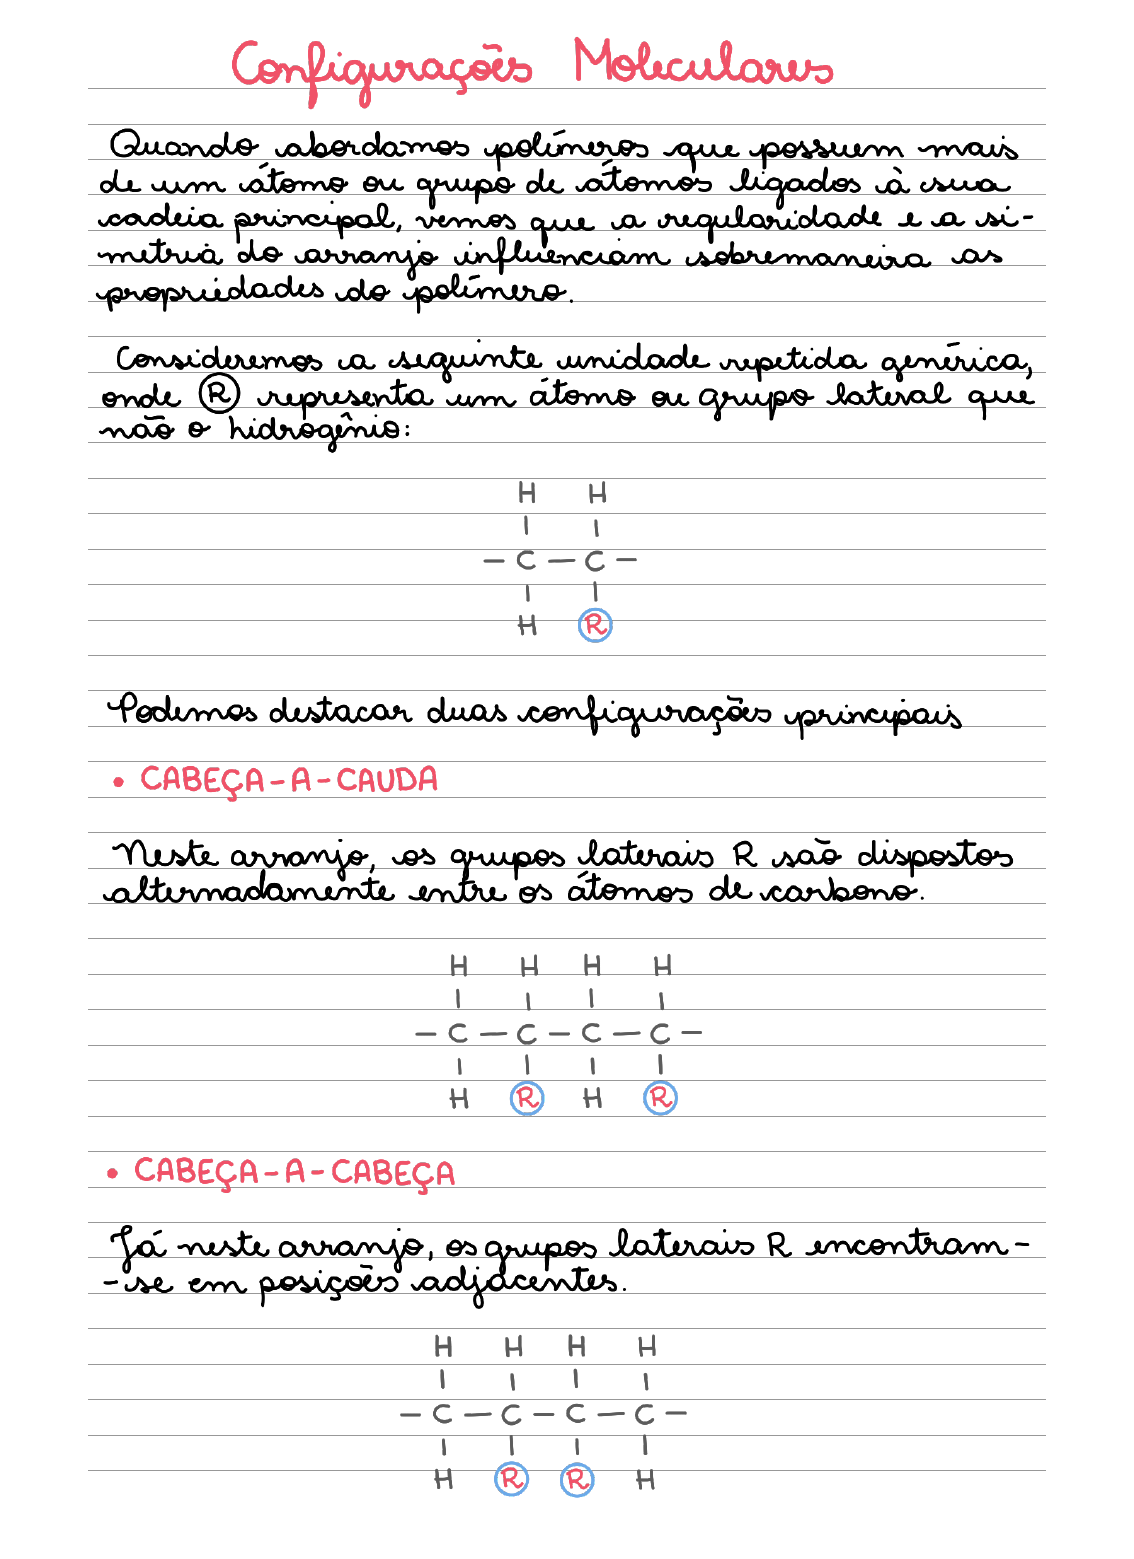 Configurações Moleculares
Quando abordamos polímeros que possuem mais
de um átomo ou grupo de átomos ligados à sua
cadeia principal, vemos que a regularidade e a si-
metria do arranjo influenciam sobremaneira as
propriedades do polímero.
Consideremos a seguinte unidade repetida genérica,
onde R representa um átomo ou grupo lateral que
não o hidrogênio:
H H
| |
— C — C —
| |
H R
Podemos destacar duas configurações principais
• CABEÇA-A-CAUDA
Neste arranjo, os grupos laterais R são dispostos
alternadamente entre os átomos de carbono.
H H H H
| | | |
— C — C — C — C —
| | | |
H R H R
• CABEÇA-A-CABEÇA
Já neste arranjo, os grupos laterais R encontram-
-se em posições adjacentes.
H H H H
| | | |
— C — C — C — C —
| | | |
H R R H